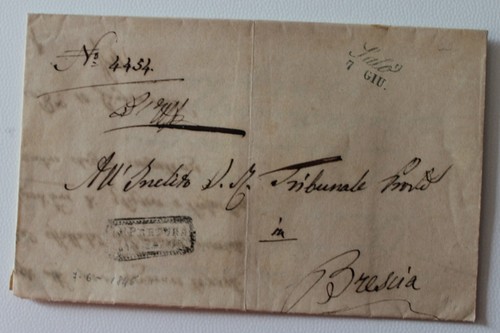 N° 4454.
Salò
7 GIU.
All' Inclito I. R. Tribunale Prov.
in
Brescia